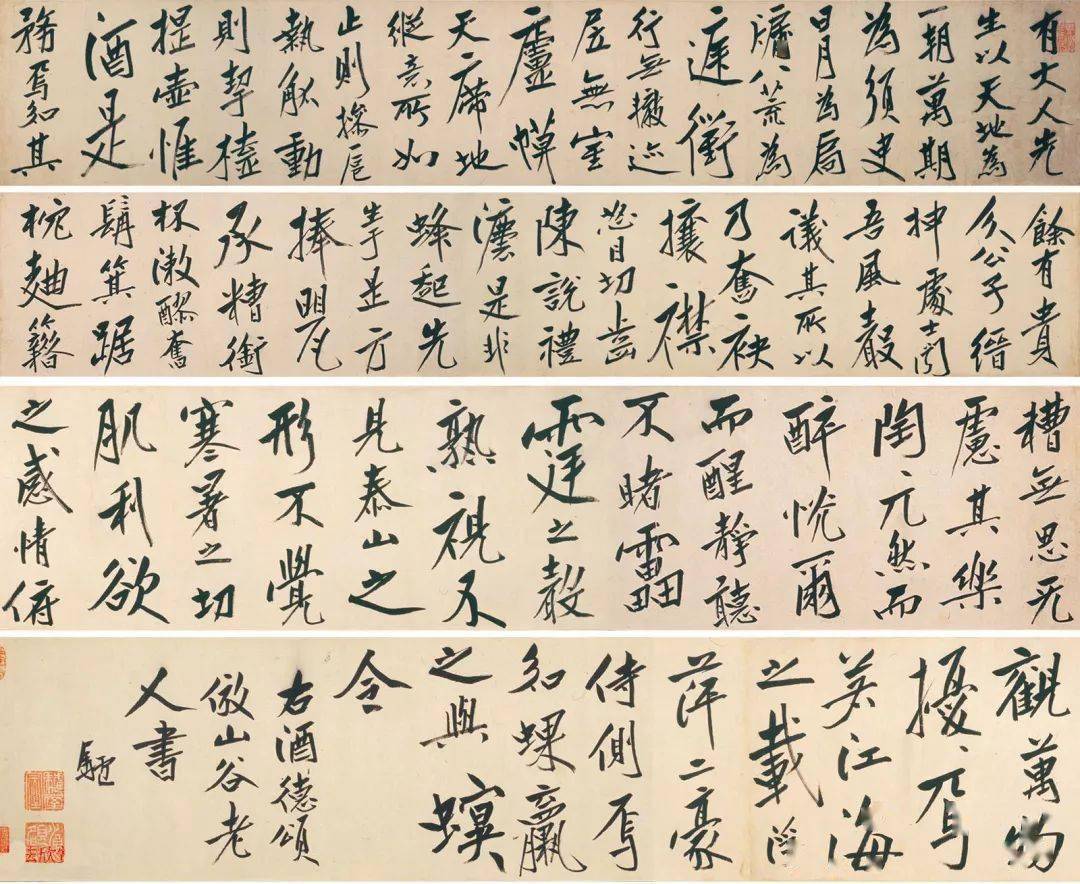 有大人先
生以天地為
一朝萬期
為須臾
日月為扃
牖八荒為
庭衢
行無轍迹
居無室
廬幙
天席地
縱意所如
止則操卮
執觚動
則挈榼
提壺惟
酒是
務焉知其
餘有貴
介公子縉
紳處士聞
吾風聲
議其所以
乃奮袂
攘襟
怒目切齒
陳說禮
灋是非
蜂起先
生于是方
捧甖
承糟銜
杯漱醪奮
髯箕踞
枕麴籍
糟無思无
慮其樂
陶〻兀然而
醉怳爾
而醒靜聽
不睹雷
霆之聲
熟視不
見泰山之
形不覺
寒暑之切
肌利欲
之感情俯
觀萬物
擾〻焉
若江海
之載浮
萍二豪
侍側焉
如蜾蠃
之與螟
令
右酒德頌
倣山谷老
人書